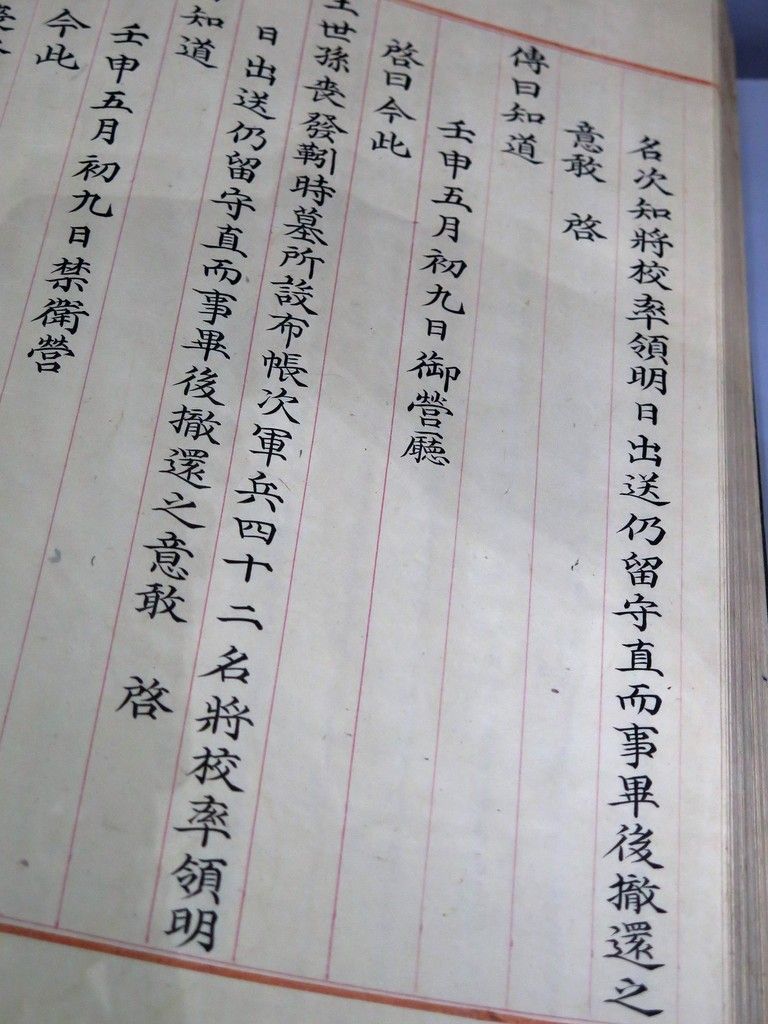 名次知將校率領明日出送仍留守直而事畢後撤還之
意敢 啓
傳曰知道
壬申五月初九日御營廳
啓曰今此
世孫喪發靷時墓所設布帳次軍兵四十二名將校率領明
日出送仍留守直而事畢後撤還之意敢 啓
知道
壬申五月初九日禁衛營
今此